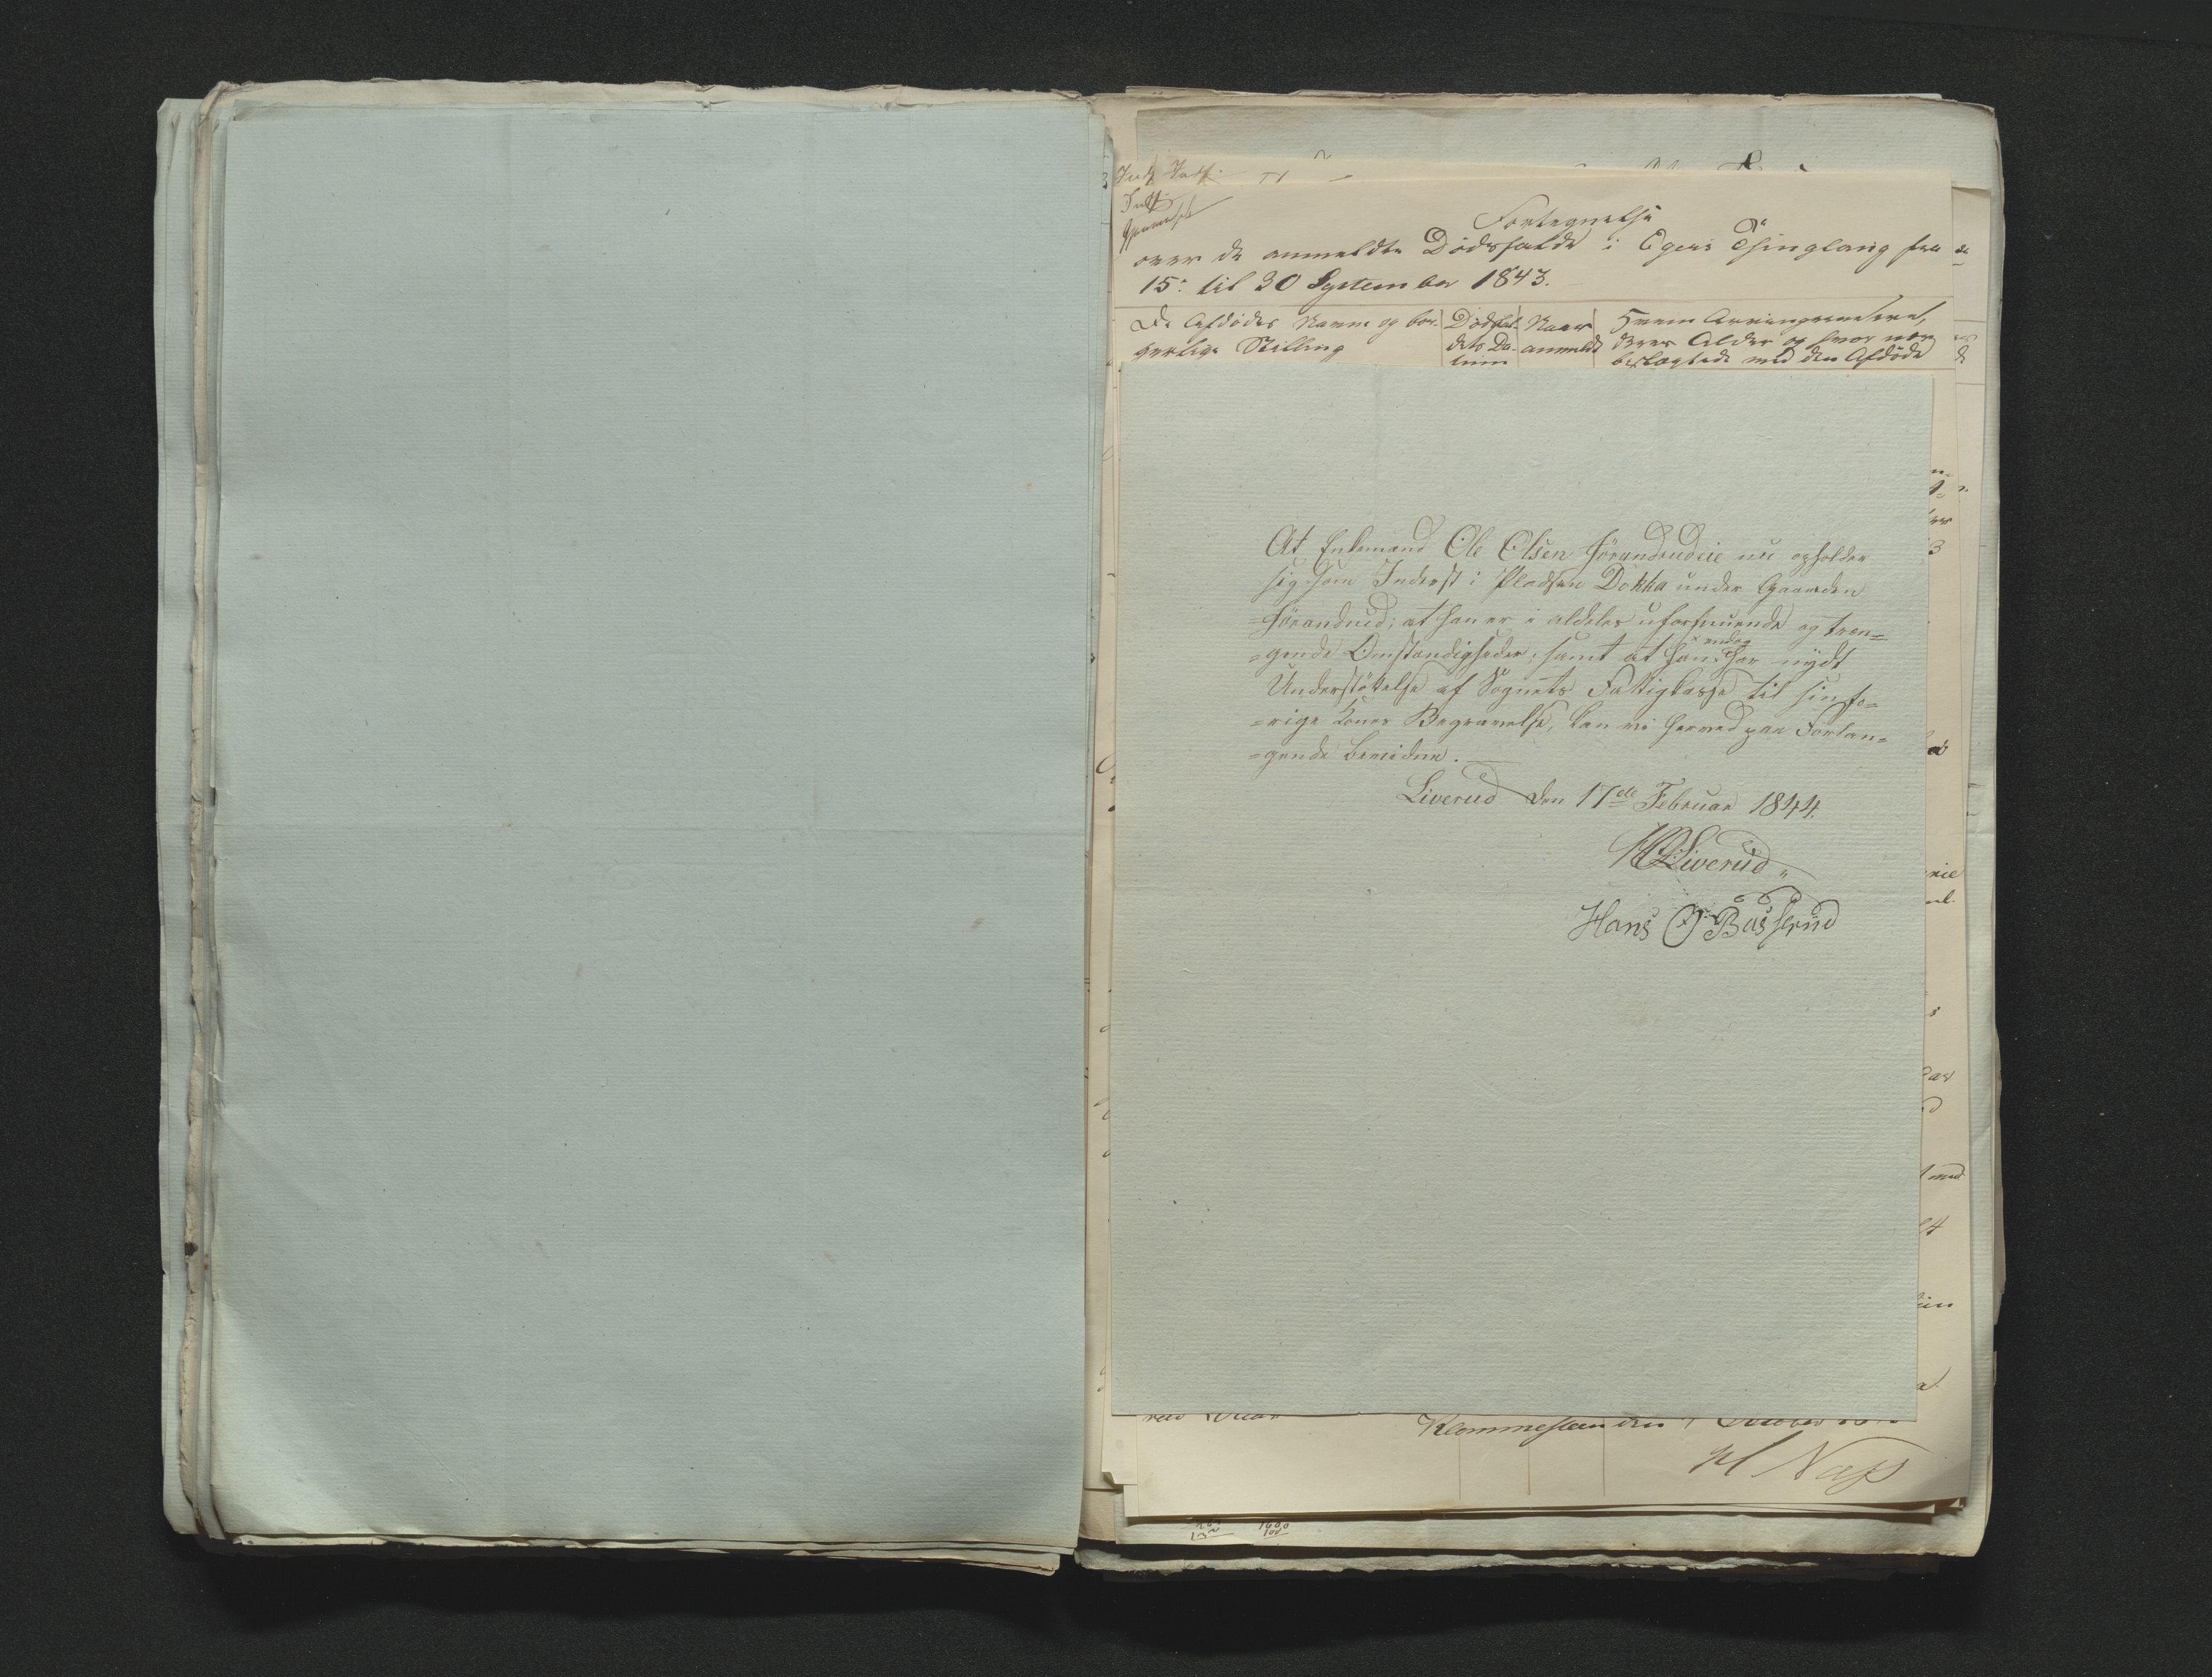 Fortegnelse
over de anmeldte Dödsfalde i Egers Thinglaug fra
15: til 30 September 1843.
De Afdödes Navne og bor-
gerlige Stilling
Dödsfal-
dets Da-
tum
Naar
anmeldt
Hvem Arvingerne ere,
deres Alder og hvor nær
beslægtede med den Afdöde
At Enkemand Ole Olsen Jörandrudeie nu opholder
sig som Inderst i Pladsen Dokka under Gaarden
Jörandrud; at han er i aldeles uformuende og træn=
=gende Omstændigheder; samt at han × har nydt
× endog
Understöttelse af Sognets Fattigkasse til sin fo=
=rige Kones Begravelse, kan vi herved paa Forlan=
=gende bevidne.
Liverud den 17de Februar 1844.
Liverud
Hans O Basserud
Klommesteen den 1 October
Næss